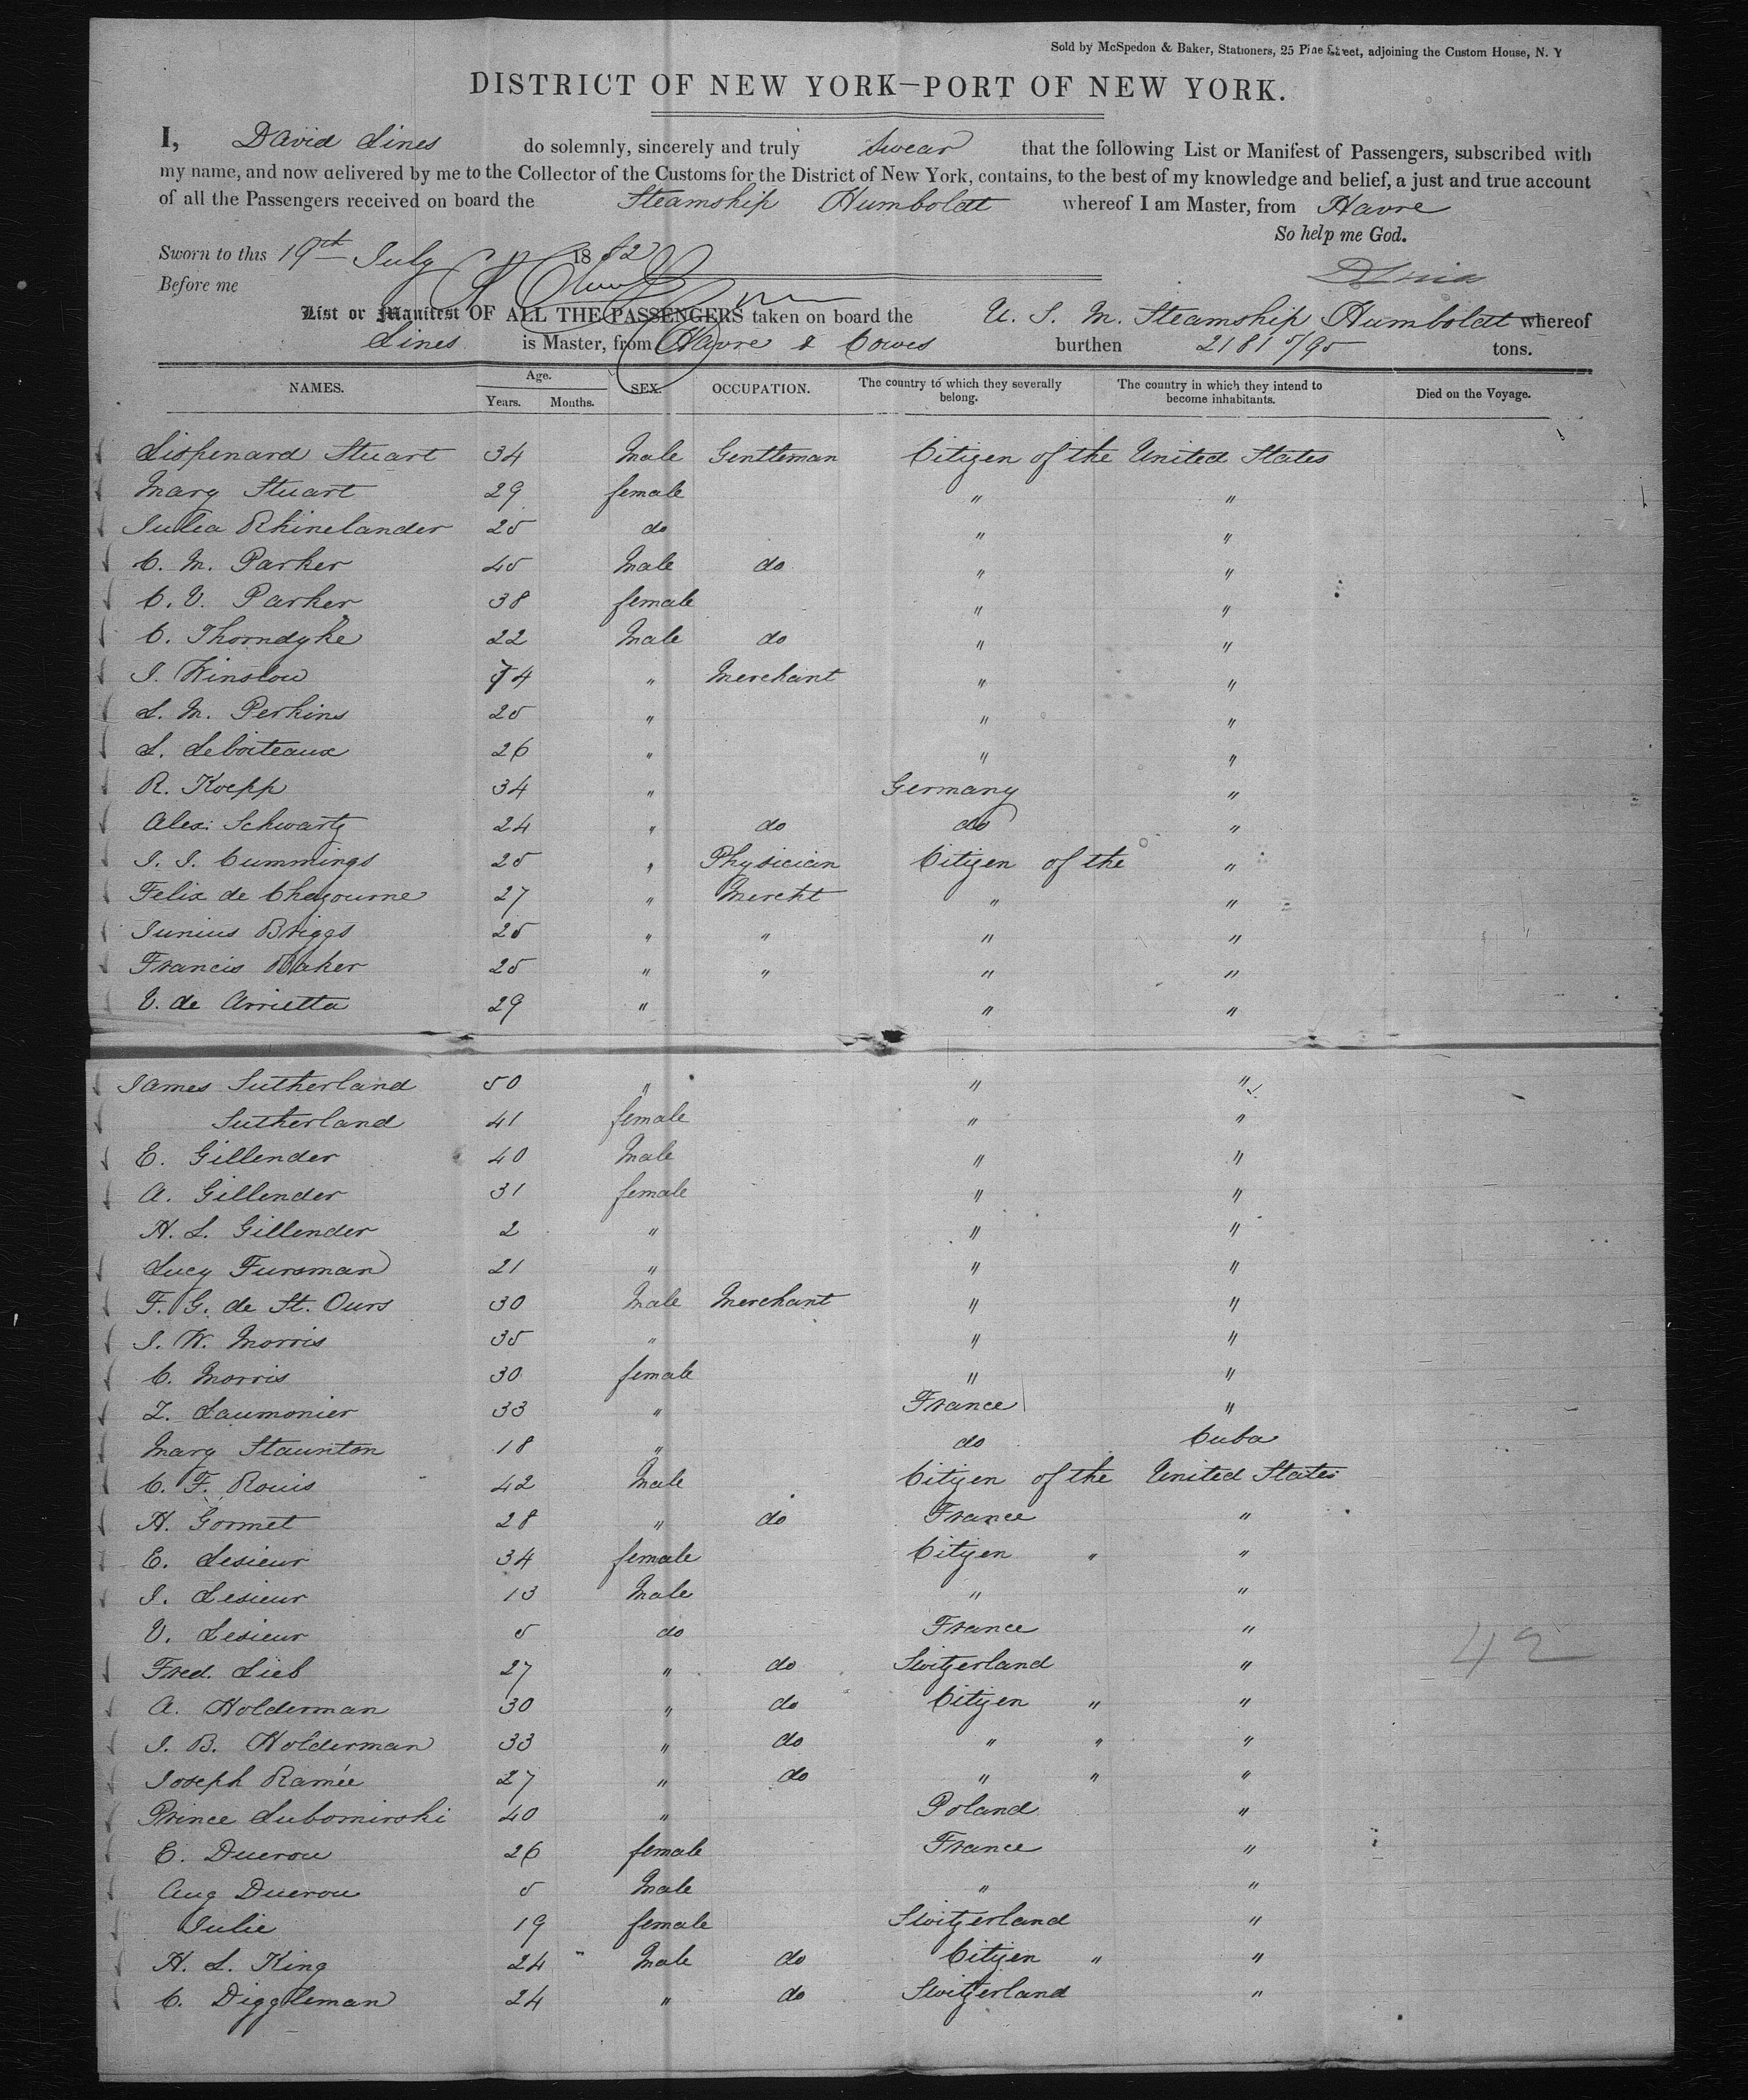 Sold by McSpedon & Baker, Stationers, 25 Pine Street, adjoining the Custom House, N. Y
DISTRICT OF NEW YORK—PORT OF NEW YORK.
I, David Lines do solemnly, sincerely and truly swear that the following List or Manifest of Passengers, subscribed with
my name, and now delivered by me to the Collector of the Customs for the District of New York, contains, to the best of my knowledge and belief, a just and true account
of all the Passengers received on board the Steamship Humboldt whereof I am Master, from Havre
So help me God.
Sworn to this 19th July 1852
Before me
List or Manifest OF ALL THE PASSENGERS taken on board the U. S. M. Steamship Humboldt whereof
Lines is Master, from Havre & Cowes burthen 2181 5/95 tons.
NAMES. Age. Years. Months. SEX. OCCUPATION. The country to which they severally belong. The country in which they intend to become inhabitants. Died on the Voyage.
Lispenard Stuart 34 Male Gentleman Citizen of the United States
Mary Stuart 29 female " "
Julia Rhinelander 25 do " "
C. M. Parker 45 Male do " "
C. V. Parker 38 female " "
C. Thorndyke 22 Male do " "
I. Winslow 74 " Merchant " "
L. M. Perkins 25 " " "
L. Leboiteaux 26 " " "
R. Koepp 34 " Germany "
Alex: Schwartz 24 " do do "
J. J. Cummings 25 " Physician Citizen of the "
Felix de Chazourne 27 " Mercht " "
Junius Briggs 25 " " " "
Francis Baker 25 " " " "
V. de Arrietta 29 " " "
James Sutherland 50 " " "
Sutherland 41 female " "
E. Gillender 40 Male " "
A. Gillender 31 female " "
H. L. Gillender 2 " " "
Lucy Fursman 21 " " "
F. G. de St. Ours 30 Male Merchant " "
J. W. Morris 35 " " "
C. Morris 30 female " "
Z. Laumonier 33 " France "
Mary Staunton 18 " do Cuba
C. F. Rouis 42 Male Citizen of the United States
H. Gormet 28 " do France "
E. Lesieur 34 female Citizen " "
J. Lesieur 13 Male " "
V. Lesieur 5 do France "
Fred. Lieb 27 " do Switzerland "
A. Holderman 30 " do Citizen " "
J. B. Holderman 33 " do " " "
Joseph Ramée 27 " do " " "
Prince Lubomirski 40 " Poland "
E. Ducrou 26 female France "
Aug Ducrou 5 Male " "
Julie 19 female Switzerland "
H. L. King 24 " Male do Citizen " "
C. Diggleman 24 " do Switzerland "
42